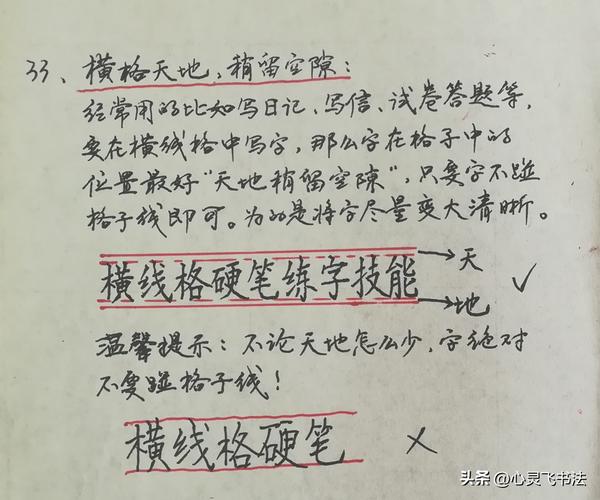 33、横格天地,稍留空隙:
经常用的比如写日记、写信、试卷答题等,
要在横线格中写字,那么字在格子中的
位置最好"天地稍留空隙",只要字不碰
格子线即可。为的是将字尽量变大清晰。
横线格硬笔练字技能
天
地
温馨提示:不论天地怎么少,字绝对
不要碰格子线!
横线格硬笔
头条 @心灵飞书法